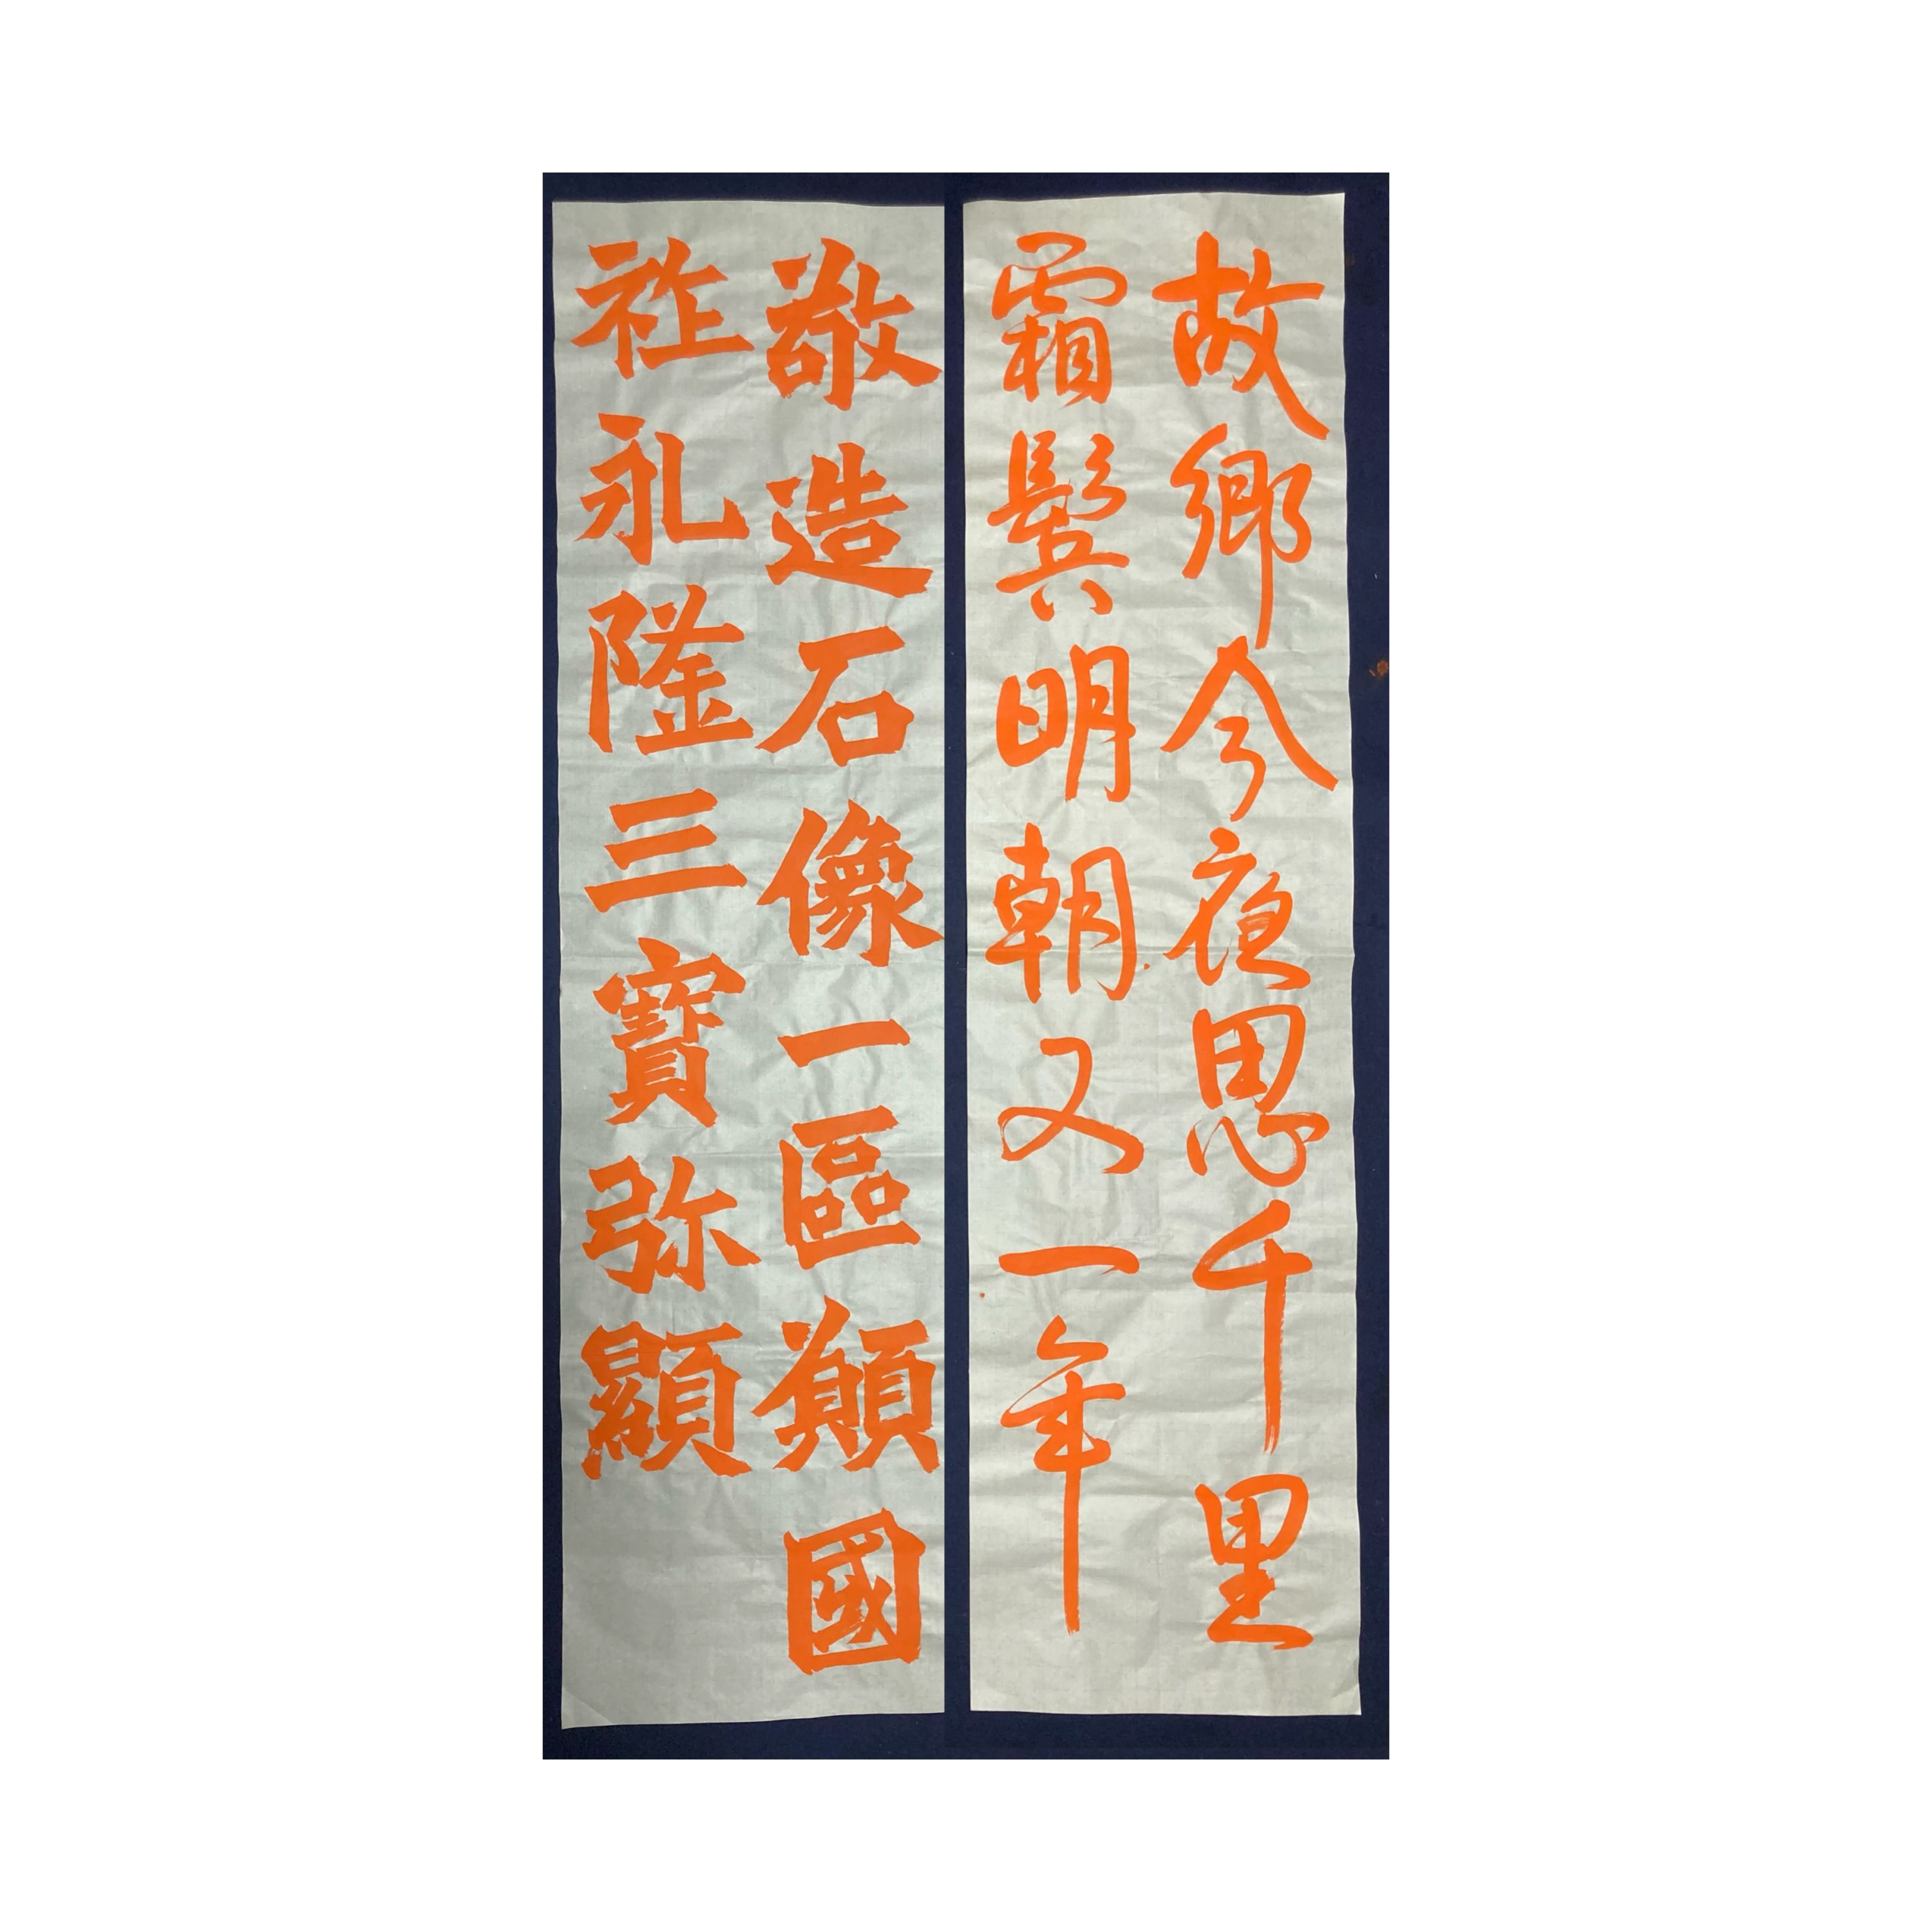 故鄉今夜思千里
霜鬂明朝又一年
敬造石像一區願國
祚永隆三寶弥顯